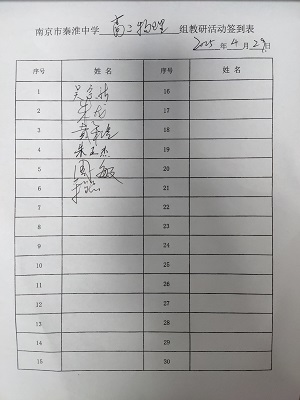 南京市秦淮中学 高二物理 组教研活动签到表
2025年4月29日
序号 姓名 序号 姓名
1 16
2 朱龙 17
3 18
4 朱玉杰 19
5 周敏 20
6 21
7 22
8 23
9 24
10 25
11 26
12 27
13 28
14 29
15 30